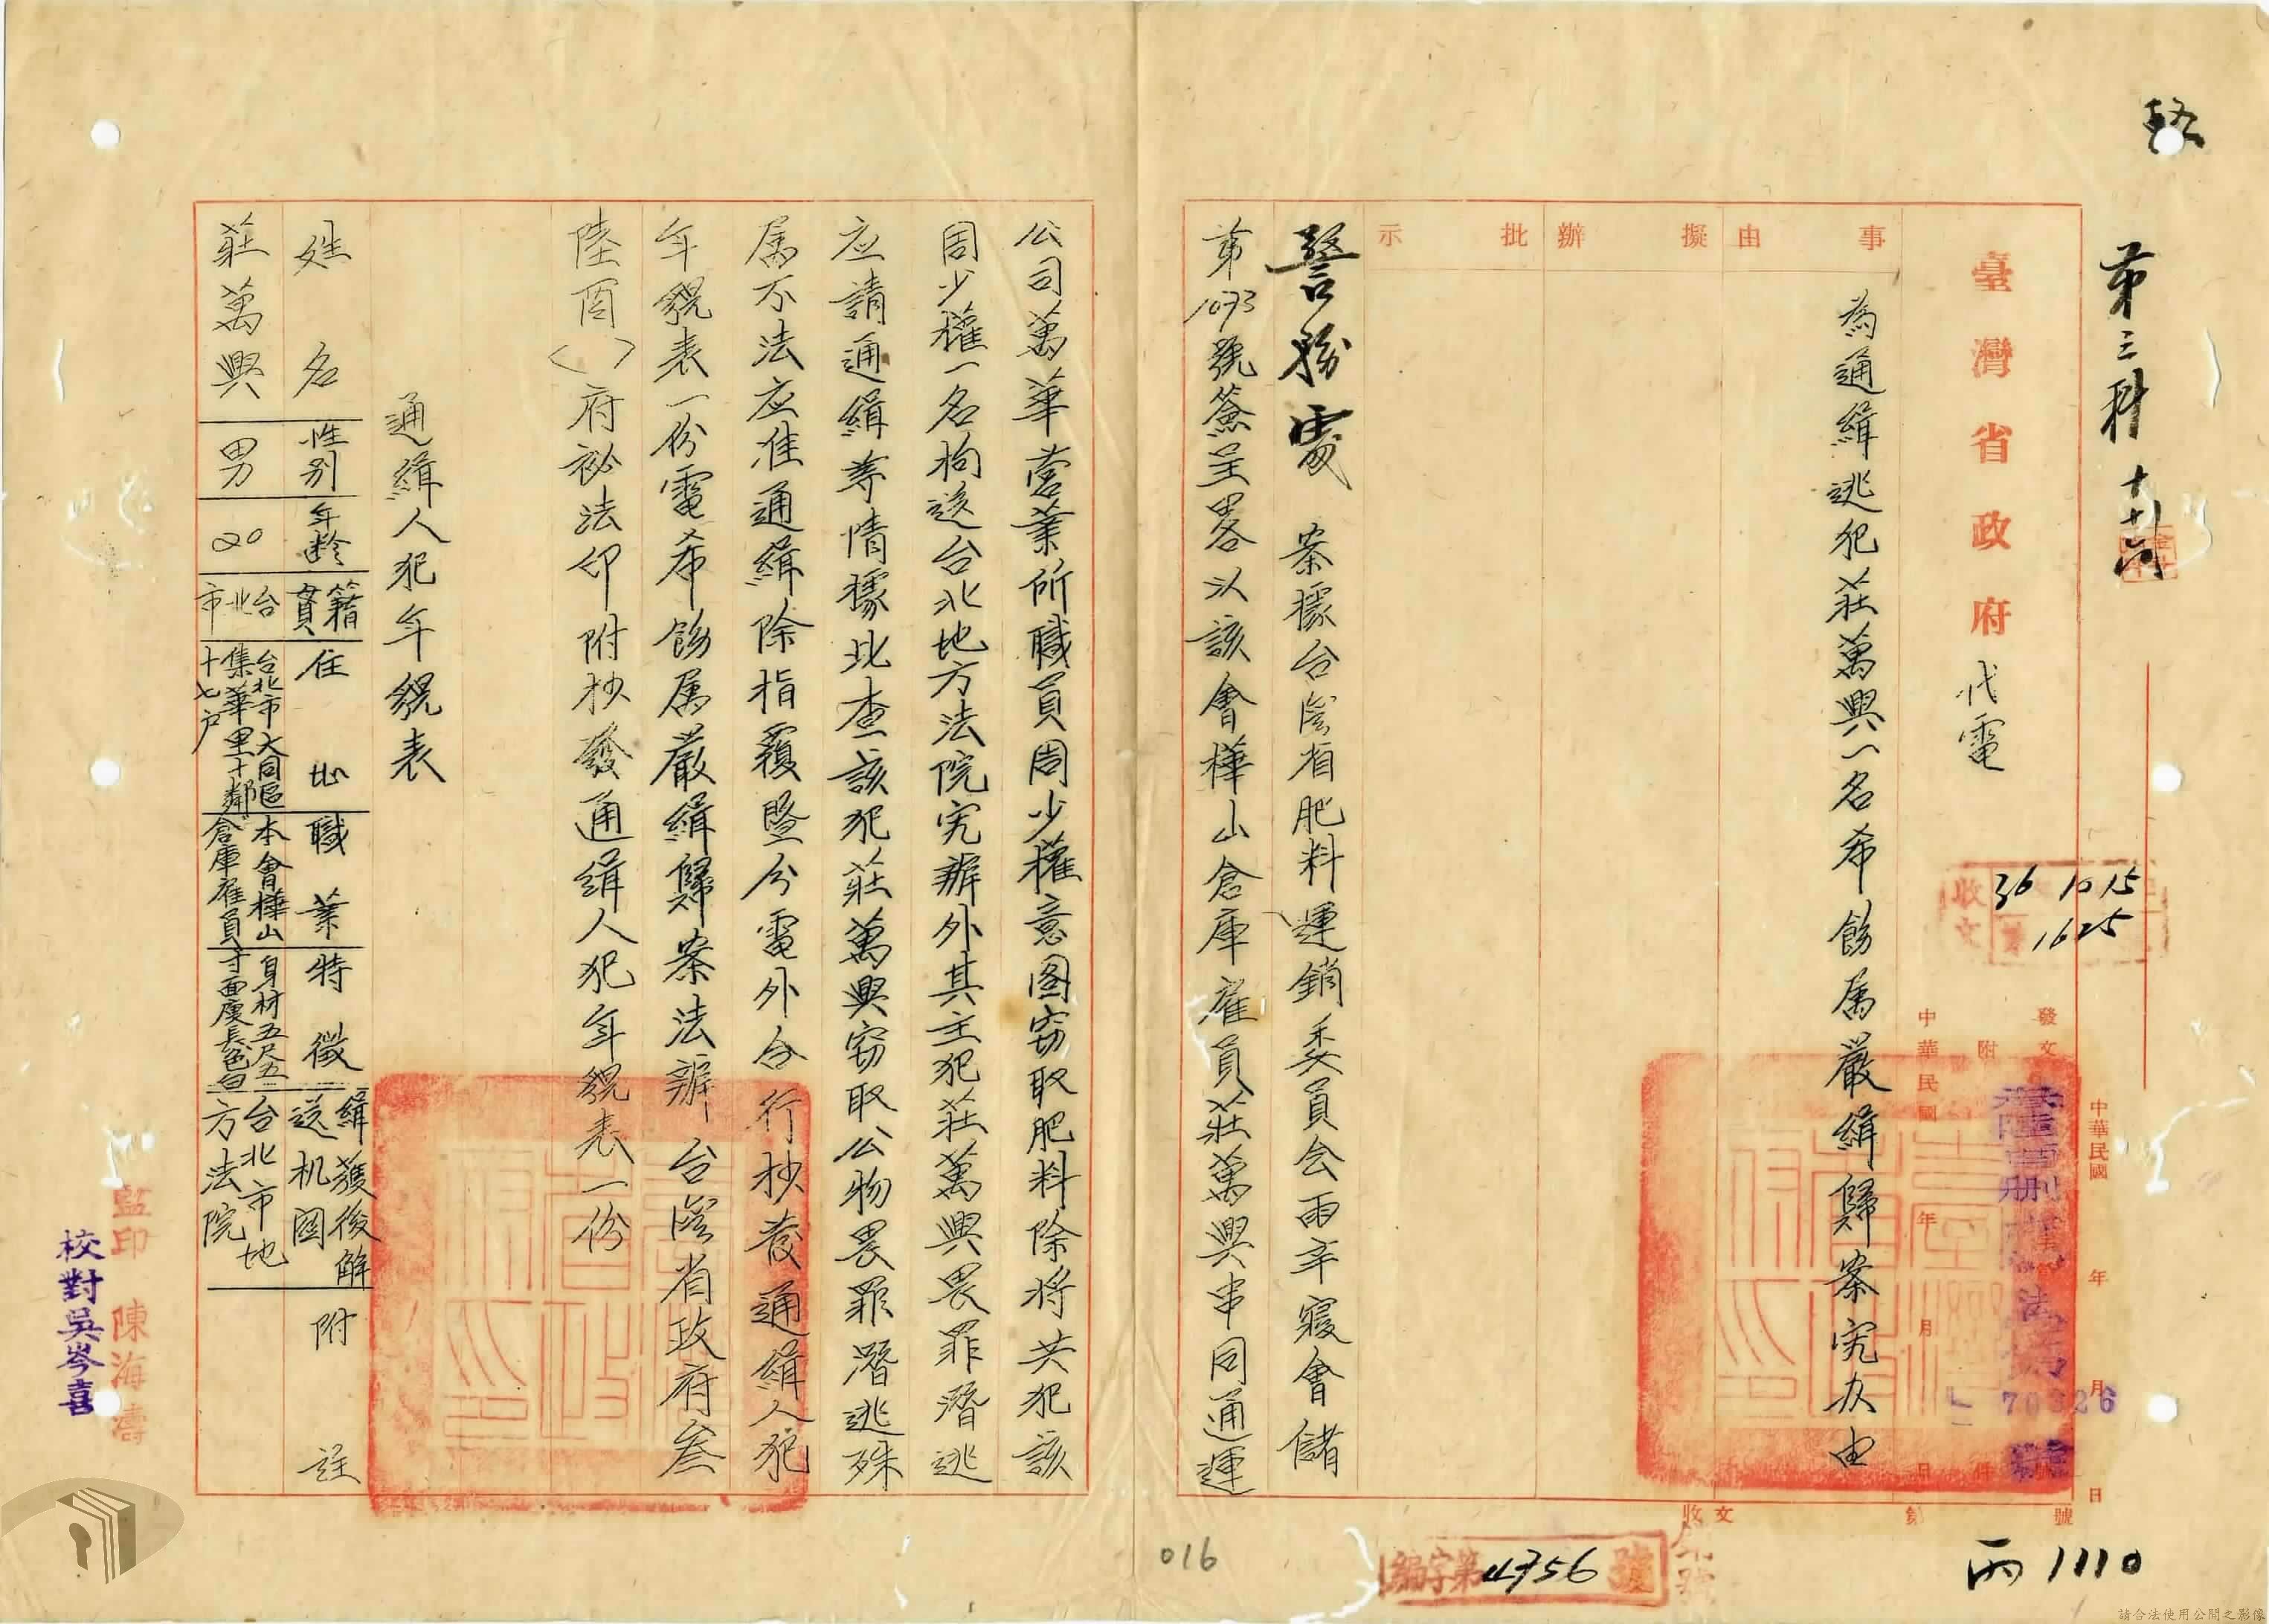 第三科
臺灣省政府代電
36 10 15
1625
發文
附件
中華民國 年 月 日
中華民國 年 月 日
70326
事由
擬辦
批示
為通緝逃犯莊萬興一名希飭属嚴緝歸案究办由
警務處 案據台湾省肥料運銷委員会雨辛寝會儲
第1093號簽呈畧以該會樺山倉庫雇員莊萬興串同通運
收文 第 號
丙1110
編字第4756號
016
公司萬華营業所職員周少權意图窃取肥料除将共犯該
周少權一名拘送台北地方法院究辦外其主犯莊萬興畏罪潛逃
应請通緝等情據此查該犯莊萬興窃取公物畏罪潛逃殊
属不法应准通緝除指覆暨分電外合行抄發通緝人犯
年貌表一份電希飭属嚴緝歸案法辦台湾省政府叁
陸酉( )府祕法印附抄發通緝人犯年貌表一份
通緝人犯年貌表
姓名 性别 年龄 籍貫 住址 職業 特徵 緝獲後解送机関 附註
莊萬興 男 20 台北市 台北市大同區集華里十鄰十七户 本會樺山倉庫雇員 身材五尺五寸面度長色白 台北市地方法院
監印 陳海濤
校對吳岑喜
請合法使用公開之影像